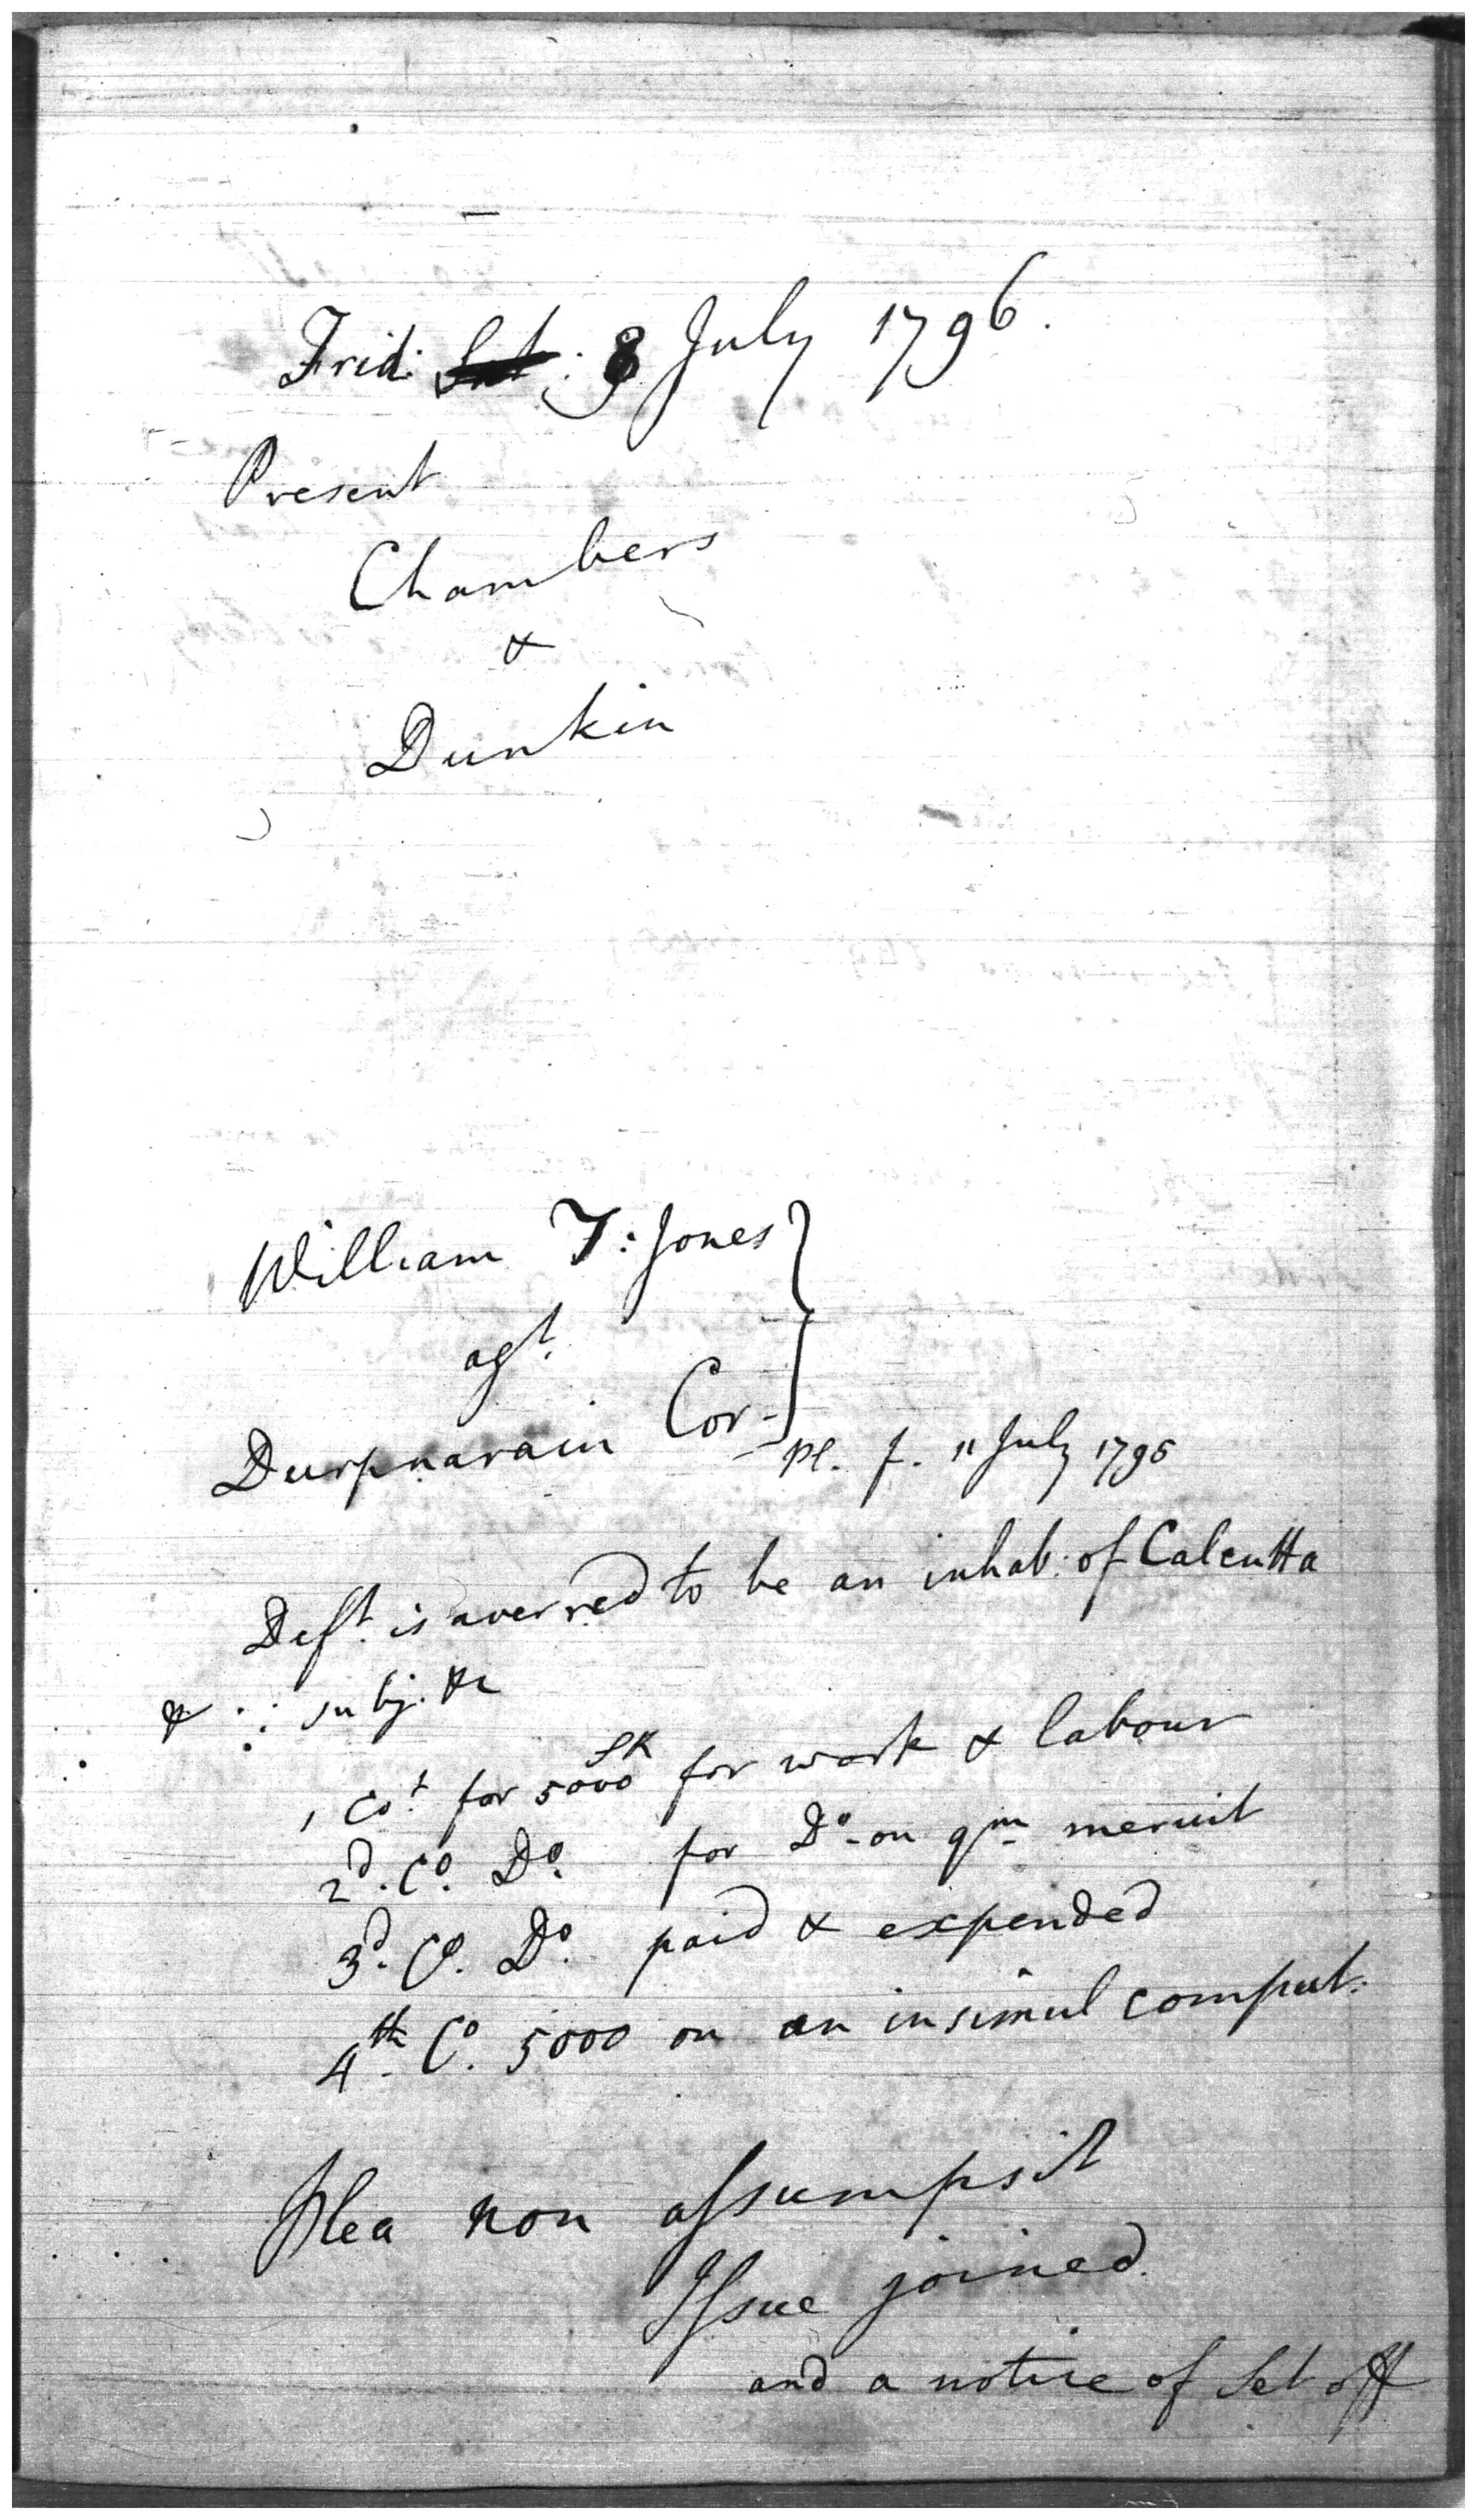 Frid: Sat: 8 July 1796.
Present
Chambers
&
Dunkin
William T: Jones
agt.
Durpnarain Cor-
Pl. f. 11 July 1795
Deft. is averred to be an inhab: of Calcutta
& ∴ subj. &c
1 Cot. for 5000 SR for work & labour
2d. Co. Do. for Do. on qm meruit
3d. Co. Do. paid & expended
4th Co. 5000 on an insimul comput:
Plea non assumpsit
Issue joined
and a notice of Set off